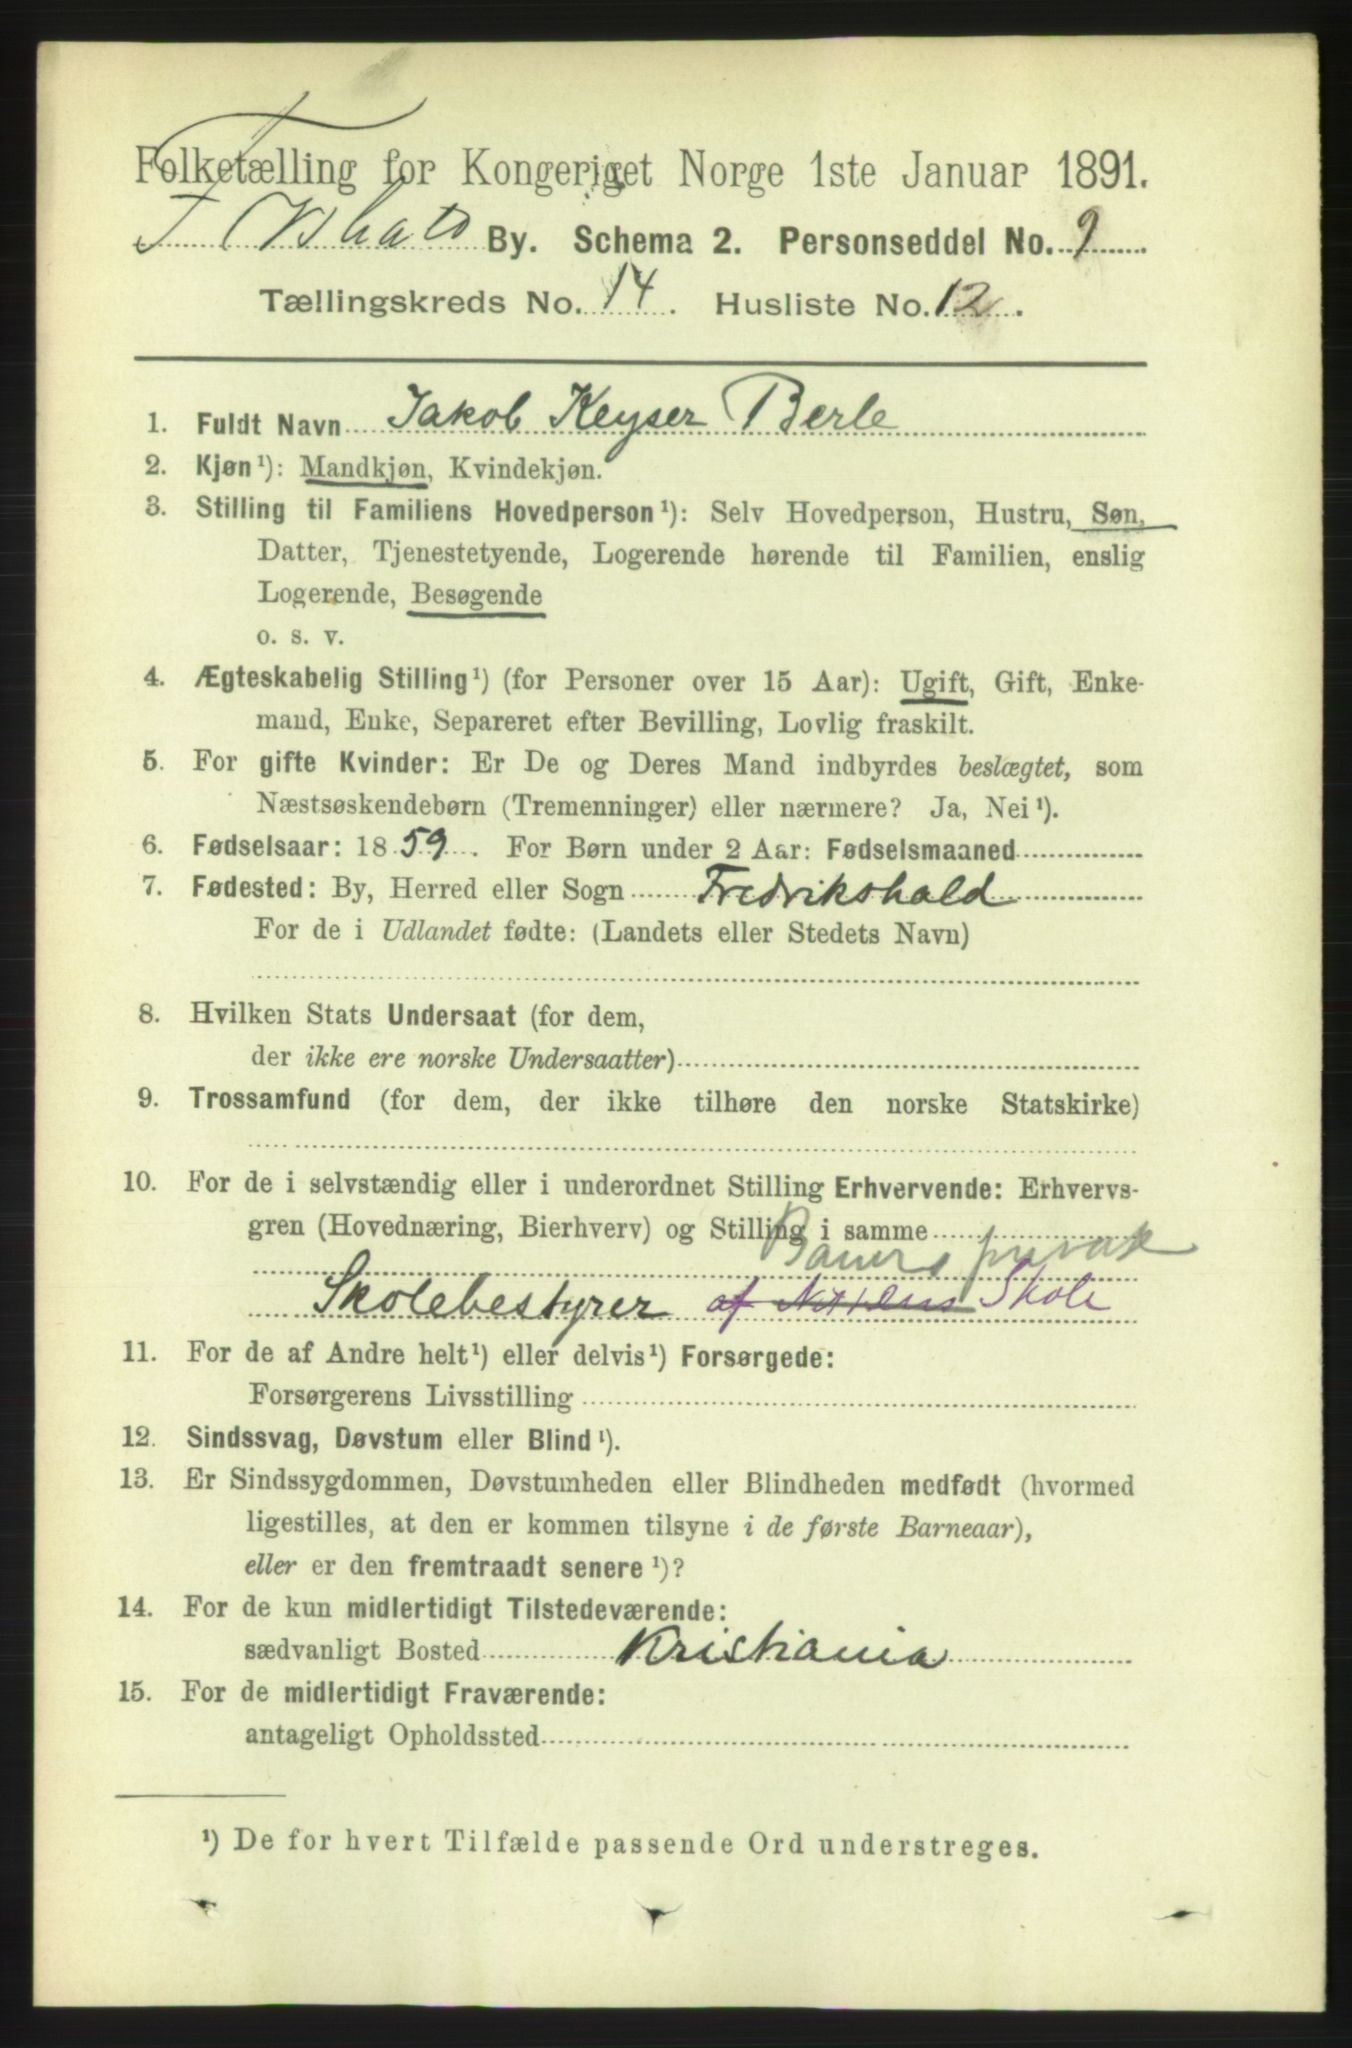 Folketælling for Kongeriget Norge 1ste Januar 1891.
By. Schema 2. Personseddel No. 9
Tællingskreds No. 14. Husliste No. 12.
1. Fuldt Navn Jakob Keyser Berle
2. Kjøn¹): Mandkjøn, Kvindekjøn.
3. Stilling til Familiens Hovedperson¹): Selv Hovedperson, Hustru, Søn,
Datter, Tjenestetyende, Logerende hørende til Familien, enslig
Logerende, Besøgende
o. s. v.
4. Ægteskabelig Stilling¹) (for Personer over 15 Aar): Ugift, Gift, Enke-
mand, Enke, Separeret efter Bevilling, Lovlig fraskilt.
5. For gifte Kvinder: Er De og Deres Mand indbyrdes beslægtet, som
Næstsøskendebørn (Tremenninger) eller nærmere? Ja, Nei¹).
6. Fødselsaar: 1859. For Børn under 2 Aar: Fødselsmaaned
7. Fødested: By, Herred eller Sogn Fredrikshald
For de i Udlandet fødte: (Landets eller Stedets Navn)
8. Hvilken Stats Undersaat (for dem,
der ikke ere norske Undersaatter)
9. Trossamfund (for dem, der ikke tilhøre den norske Statskirke)
10. For de i selvstændig eller i underordnet Stilling Erhvervende: Erhvervs-
gren (Hovednæring, Bierhverv) og Stilling i samme
privat
Skolebestyrer af Skole
11. For de af Andre helt¹) eller delvis¹) Forsørgede:
Forsørgerens Livsstilling
12. Sindssvag, Døvstum eller Blind¹).
13. Er Sindssygdommen, Døvstumheden eller Blindheden medfødt (hvormed
ligestilles, at den er kommen tilsyne i de første Barneaar),
eller er den fremtraadt senere¹)?
14. For de kun midlertidigt Tilstedeværende:
sædvanligt Bosted Kristiania
15. For de midlertidigt Fraværende:
antageligt Opholdssted
¹) De for hvert Tilfælde passende Ord understreges.